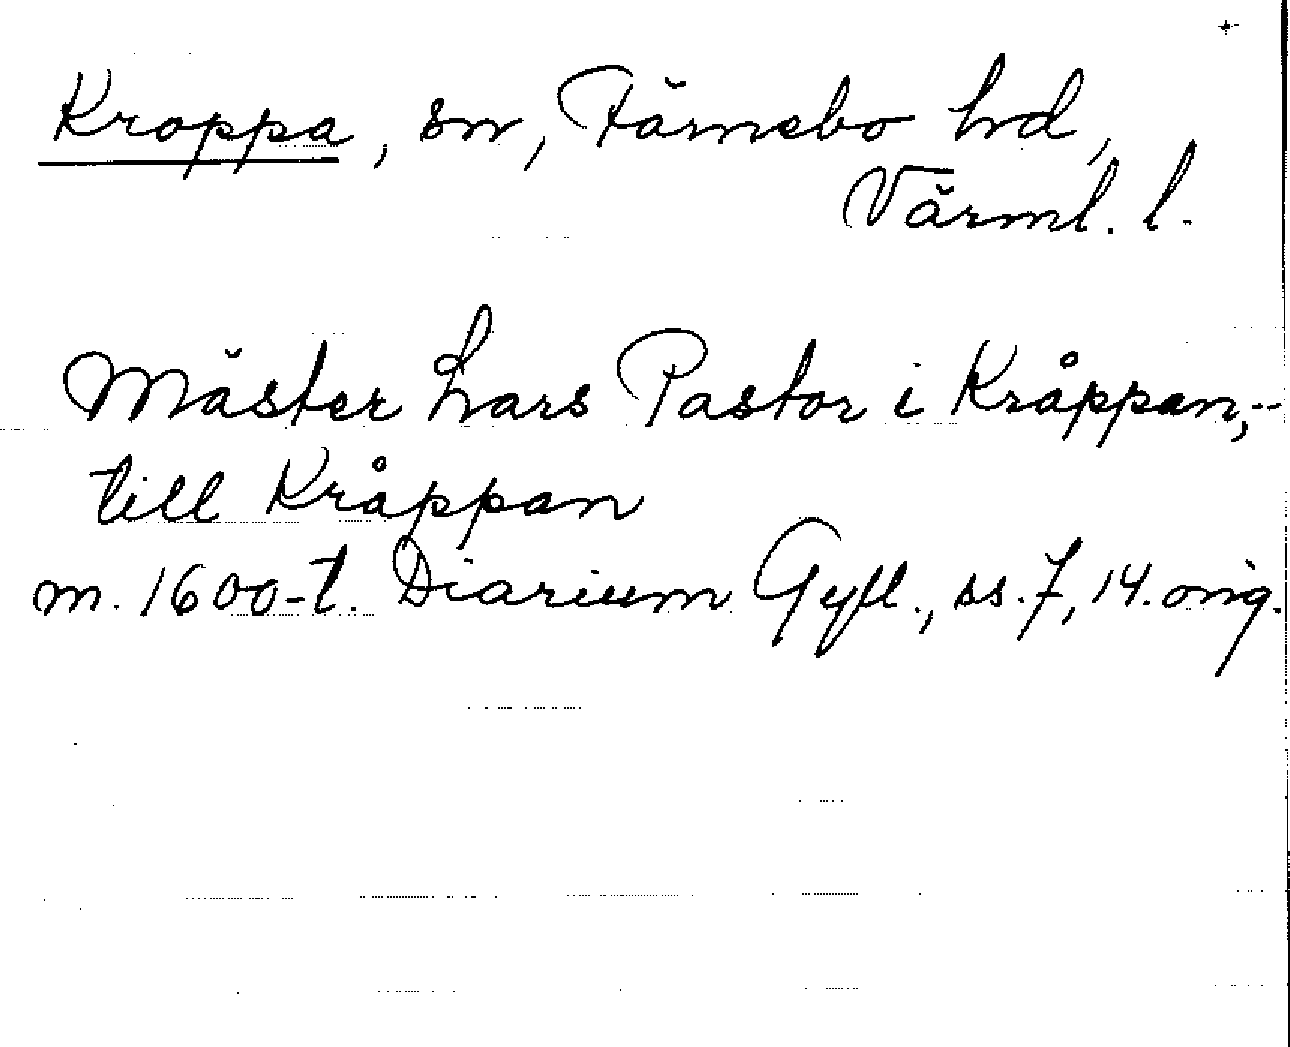 Kroppa, sn, Färnebo hrd,
Värml. l.
Mäster Lars Pastor i Kråppan,--
till Kråppan
m. 1600-t. Diarium Gyll., ss. 7, 14. orig.